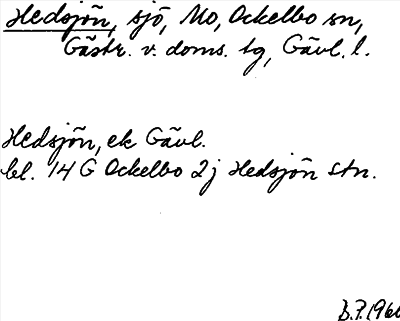 Hedsjön, sjö, Mo, Ockelbo sn,
Gästr. v. doms. tg, Gävl. l.
Hedsjön, ek Gävl.
bl. 14 G Ockelbo 2j Hedsjön stn.
B.P. 1966